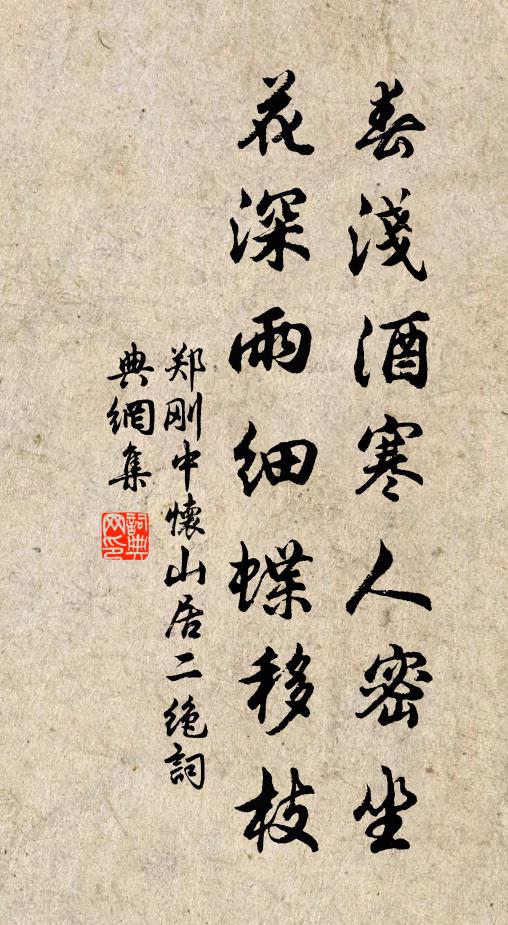 春淺酒寒人密坐
花深雨細蝶移枝
郑刚中懷山居二绝詞
典網集
詞典网印